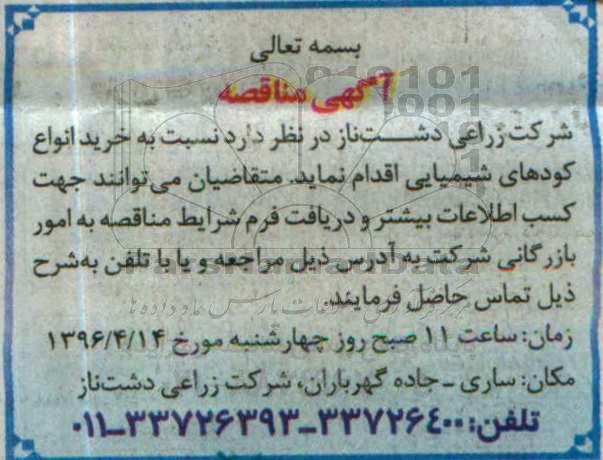 بسمه تعالی
آگهی مناقصه
شرکت زراعی دشت‌ناز در نظر دارد نسبت به خرید انواع
کودهای شیمیایی اقدام نماید. متقاضیان می‌توانند جهت
کسب اطلاعات بیشتر و دریافت فرم شرایط مناقصه به امور
بازرگانی شرکت به آدرس ذیل مراجعه و یا با تلفن به‌شرح
ذیل تماس حاصل فرمایند.
زمان: ساعت ۱۱ صبح روز چهارشنبه مورخ ۱۳۹۶/۴/۱۴
مکان: ساری ـ جاده گهرباران، شرکت زراعی دشت‌ناز
تلفن: ۳۳۷۲۶۴۰۰ـ۳۳۷۲۶۳۹۳ـ۰۱۱